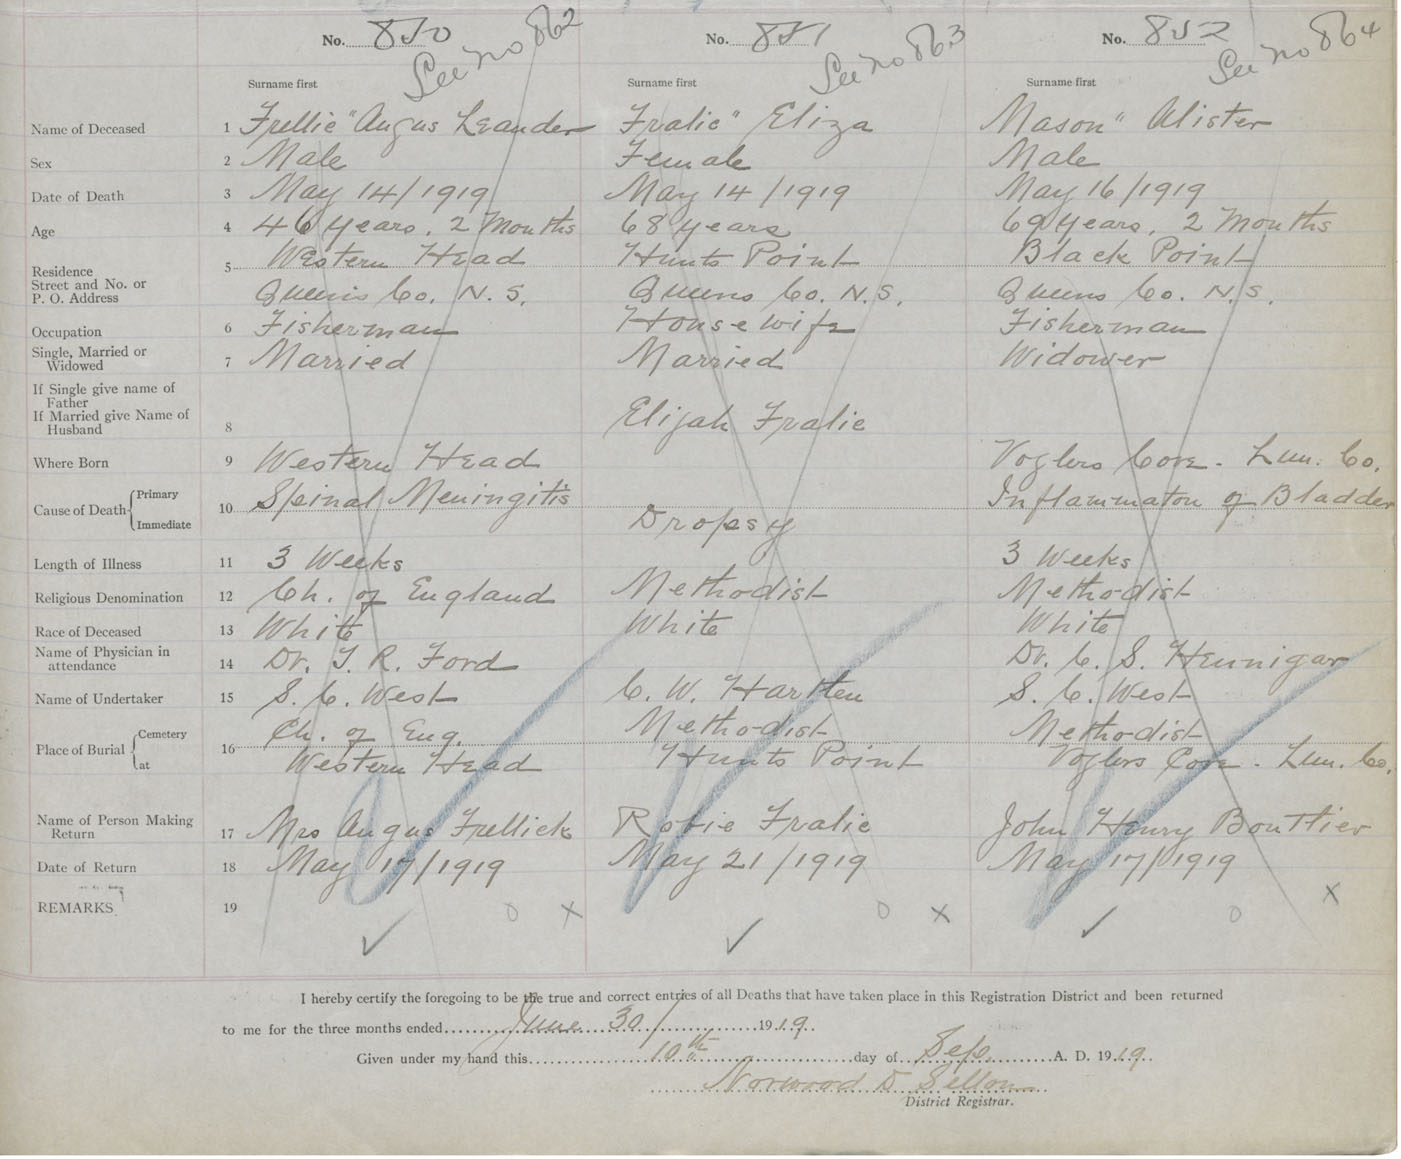 No. 850 No. 851 No. 852
See no 862 See no 863 See no 864
Surname first Surname first Surname first
Name of Deceased 1 Frellic" Angus Leander Fralic" Eliza Mason" Alister
Sex 2 Male Female Male
Date of Death 3 May 14/1919 May 14/1919 May 16/1919
Age 4 46 years, 2 Months 68 years 69 years, 2 Months
Residence 5 Western Head Hunts Point Black Point
Street and No. or
P. O. Address Queens Co. N.S. Queens Co. N.S. Queens Co. N.S.
Occupation 6 Fisherman Housewife Fisherman
Single, Married or
Widowed 7 Married Married Widower
If Single give name of
Father
If Married give Name of
Husband 8 Elijah Fralic
Where Born 9 Western Head Voglers Cove - Lun. Co.
Cause of Death Primary 10 Spinal Meningitis Inflammaton of Bladder
Immediate Dropsy
Length of Illness 11 3 Weeks 3 Weeks
Religious Denomination 12 Ch. of England Methodist Methodist
Race of Deceased 13 White White White
Name of Physician in
attendance 14 Dr. T. R. Ford Dr. C. S. Hennigar
Name of Undertaker 15 S. C. West C. W. Hartlen S. C. West
Place of Burial Cemetery 16 Ch. of Eng. Methodist Methodist
at Western Head Hunts Point Voglers Cove - Lun. Co.
Name of Person Making
Return 17 Mrs Angus Frellick Robie Fralic John Henry Bouttier
Date of Return 18 May 17/1919 May 21/1919 May 17/1919
REMARKS 19 0 X 0 X 0 X
I hereby certify the foregoing to be the true and correct entries of all Deaths that have taken place in this Registration District and been returned
to me for the three months ended June 30/ 1919.
Given under my hand this 10th day of Sep. A. D. 1919.
Norwood
District Registrar.